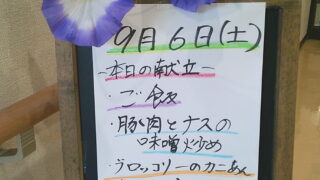 9月6日(土)
-本日の献立-
・ご飯
・豚肉とナスの
味噌炒め
・ブロッコリーのカニあん